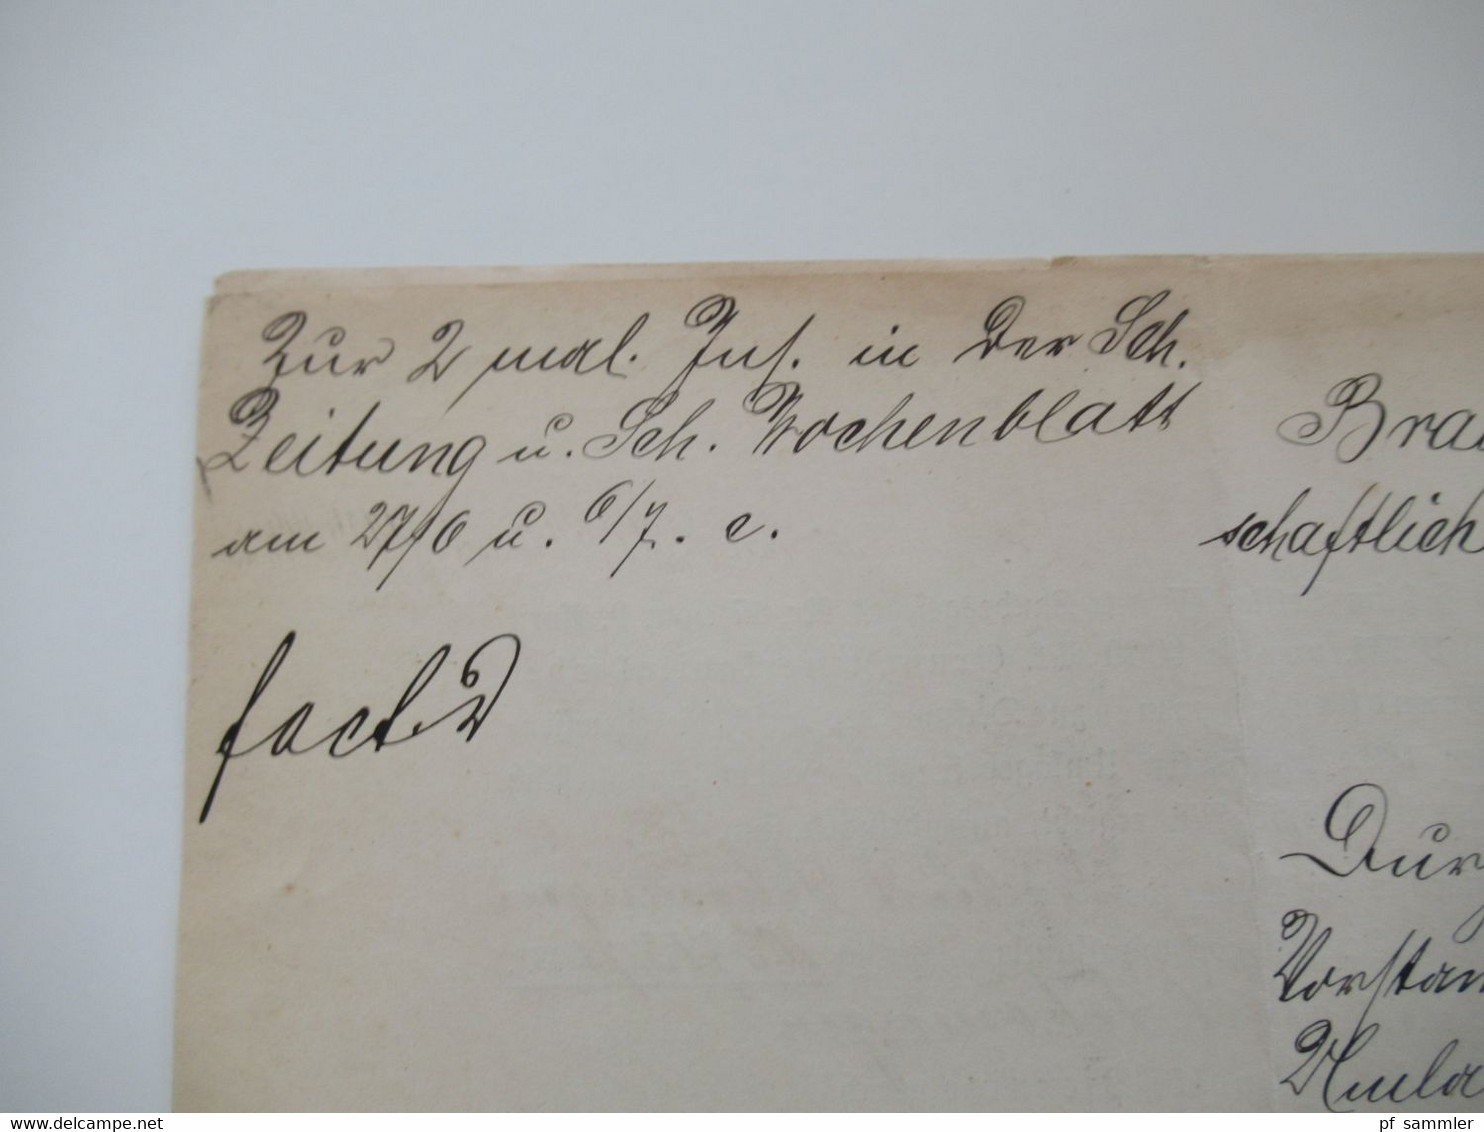 Zur 2 mal. Ins. in der Sch.
Zeitung u. Sch. Wochenblatt
am 27/6 u. 6/7. c.
fact.
Bra
schaftlich
Dur
Vorstan
Umla
www.delcampe.net
pf_sammler